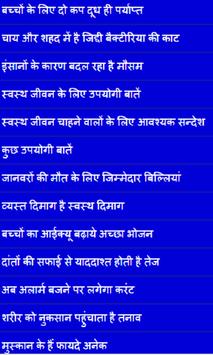 बच्चों के लिए दो कप दूध ही पर्याप्त
चाय और शहद में है जिद्दी बैक्टीरिया की काट
इंसानों के कारण बदल रहा है मौसम
स्वस्थ जीवन के लिए उपयोगी बातें
स्वस्थ जीवन चाहने वालों के लिए आवश्यक सन्देश
कुछ उपयोगी बातें
जानवरों की मौत के लिए जिम्मेदार बिल्लियां
व्यस्त दिमाग है स्वस्थ दिमाग
बच्चों का आईक्यू बढ़ाये अच्छा भोजन
दांतों की सफाई से याददाश्त होती है तेज
अब अलार्म बजने पर लगेगा करंट
शरीर को नुकसान पहुंचाता है तनाव
मुस्कान के हैं फायदे अनेक